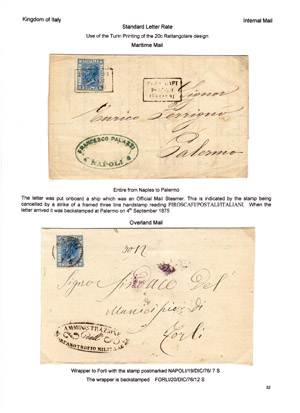 Kingdom of Italy
Internal Mail
Standard Letter Rate
Use of the Turin Printing of the 20c Rettangolare design
Maritime Mail
PIROSCAFI
POSTALI
ITALIANI
Signor
Enrico Perrigno
Palermo
FRANCESCO PALAZZI
NAPOLI
Entire from Naples to Palermo
The letter was put onboard a ship which was an Official Mail Steamer. This is indicated by the stamp being
cancelled by a strike of a framed three line handstamp reading PIROSCAFI/POSTALI/ITALIANI. When the
letter arrived it was backstamped at Palermo on 4th September 1875
Overland Mail
Signor Sindaco del
Municipio di
Forlì
AMMINISTRAZIONE
Dell'
ORFANOTROFIO MILITARE
Wrapper to Forli with the stamp postmarked NAPOLI/19/DIC/76/ 7 S
The wrapper is backstamped FORLI/20/DIC/76/12 S
32